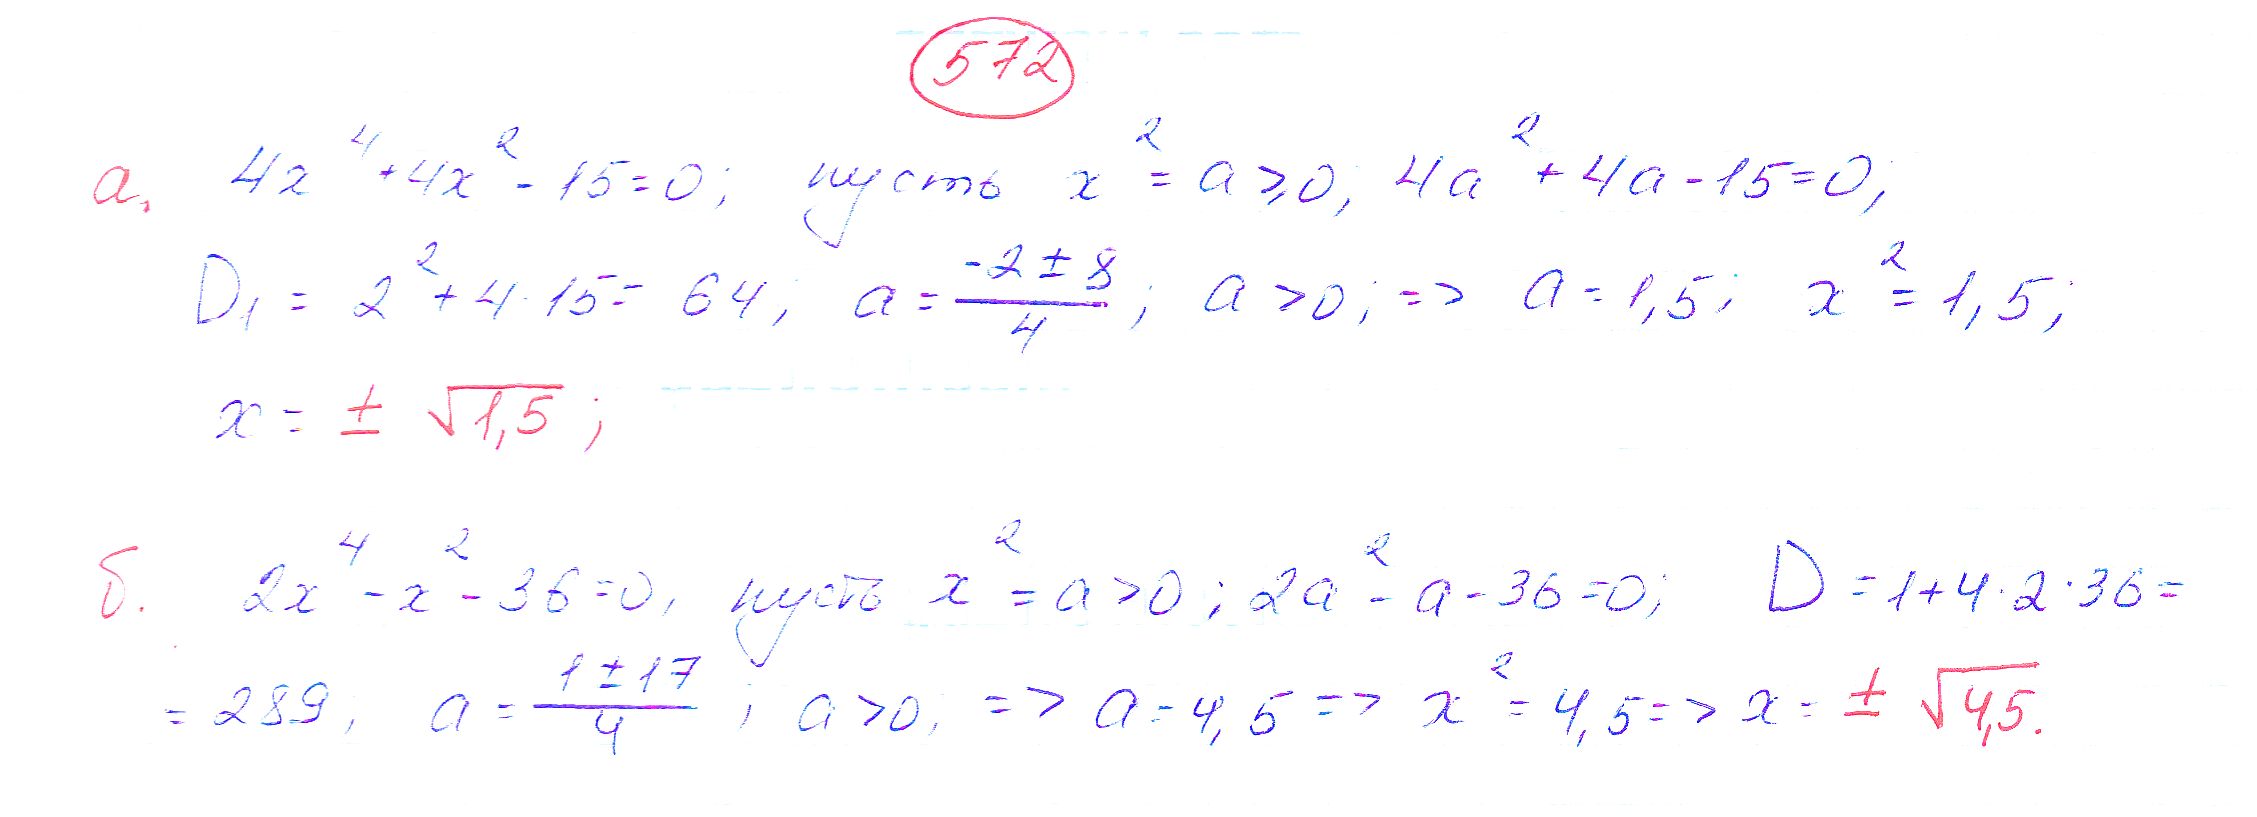 572
а. 4x⁴+4x²-15=0; пусть x²=a≥0; 4a²+4a-15=0;
D₁=2²+4·15=64; a=(-2±8)/4; a>0; => a=1,5; x²=1,5;
x=±√1,5;
б. 2x⁴-x²-36=0, пусть x²=a>0; 2a²-a-36=0; D=1+4·2·36=
=289; a=(1±17)/4; a>0; => a=4,5=> x²=4,5=> x=±√4,5.